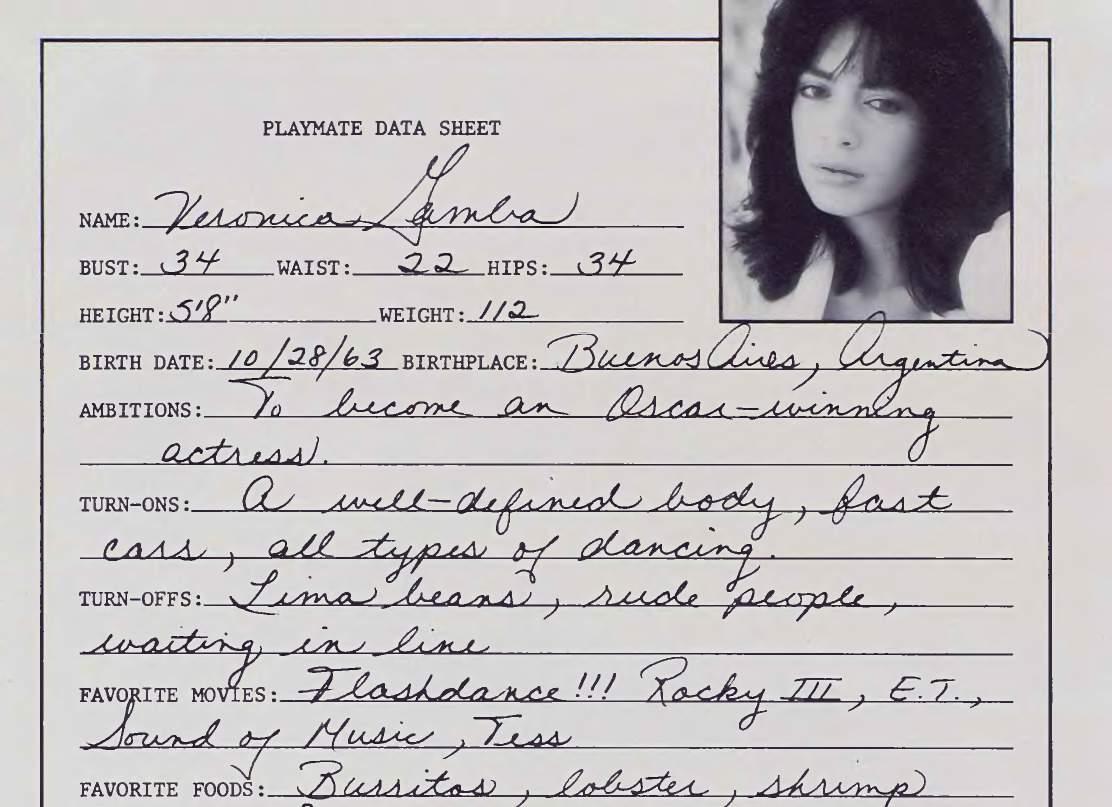 PLAYMATE DATA SHEET
NAME: Veronica Gamba
BUST: 34 WAIST: 22 HIPS: 34
HEIGHT: 5'8" WEIGHT: 112
BIRTH DATE: 10/28/63 BIRTHPLACE: Buenos Aires, Argentina
AMBITIONS: To become an Oscar-winning
actress.
TURN-ONS: A well-defined body, fast
cars, all types of dancing.
TURN-OFFS: Lima beans, rude people,
waiting in line
FAVORITE MOVIES: Flashdance!!! Rocky III, E.T.,
Sound of Music, Tess
FAVORITE FOODS: Burritos, lobster, shrimp